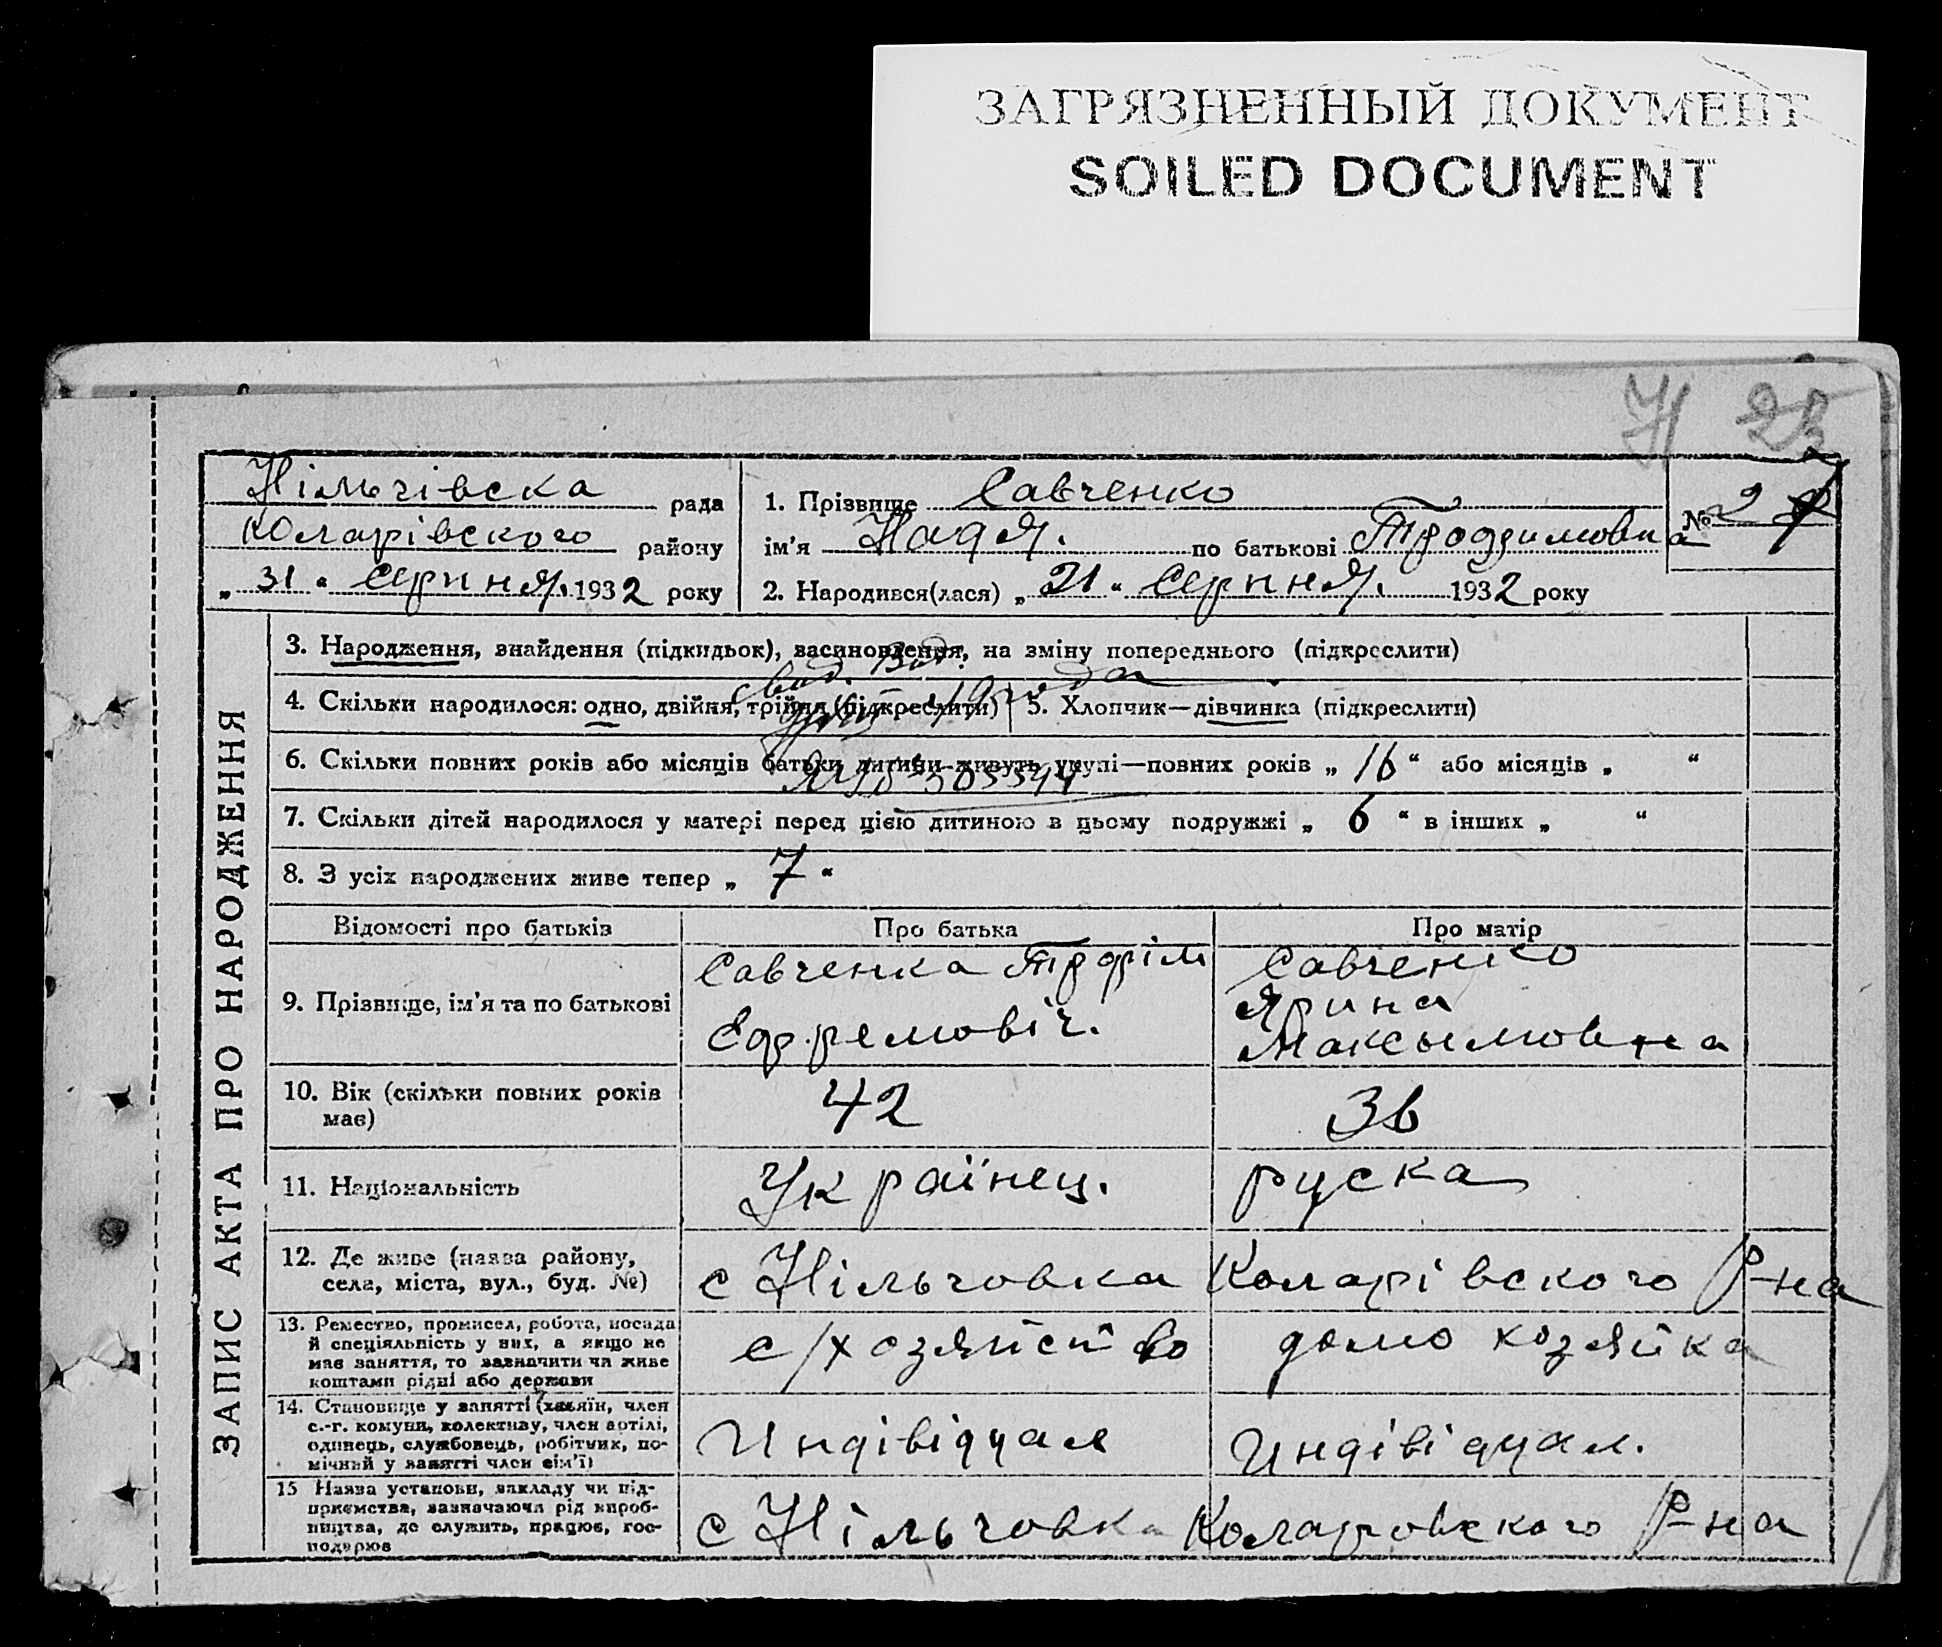 ЗАГРЯЗНЕННЫЙ ДОКУМЕНТ
SOILED DOCUMENT
Н 23
Нільгівска рада
Коларівського району
„31“ Серпня. 1932 року
1. Прізвище Савченко
ім'я Надя. по батькові Троффимовна
2. Народився(лася) „21“ Серпня. 1932 року
№ 27
ЗАПИС АКТА ПРО НАРОДЖЕННЯ
3. Народження, знайдення (підкидьок), засиновлення, на зміну попереднього (підкреслити)
4. Скільки народилося: одно, двійня, трійня (підкреслити) 5. Хлопчик—дівчинка (підкреслити)
6. Скільки повних років або місяців батьки дитини живуть укупі—повних років „16“ або місяців „ “
7. Скільки дітей народилося у матері перед цією дитиною в цьому подружжі „6“ в інших „ “
8. З усіх народжених живе тепер „7“
Відомості про батьків Про батька Про матір
9. Прізвище, ім'я та по батькові
Савченка Трофім
Еф.ремовіч.
Савченко
Ярина
Максымовна
10. Вік (скільки повних років має) 42 36
11. Національність Українец. руска
12. Де живе (назва району, села, міста, вул., буд. №)
с Нільговка Коларівского Р-на
13. Ремество, промисел, робота, посада
й спеціяльність у них, а якщо не
має заняття, то зазначити чи живе
коштами рідні або держави
с/хозяйство домохозяйка
14. Становище у занятті (хазяїн, член
с.-г. комуни, колективу, член артілі,
одинець, службовець, робітник, по-
мічний у занятті член сім'ї)
Индівідуал Индівідуал.
15 Назва установи, закладу чи під-
приємства, зазначаючи рід вироб-
ництва, де служить, працює, гос-
подарює
с Нільговка Коларовского Р-на